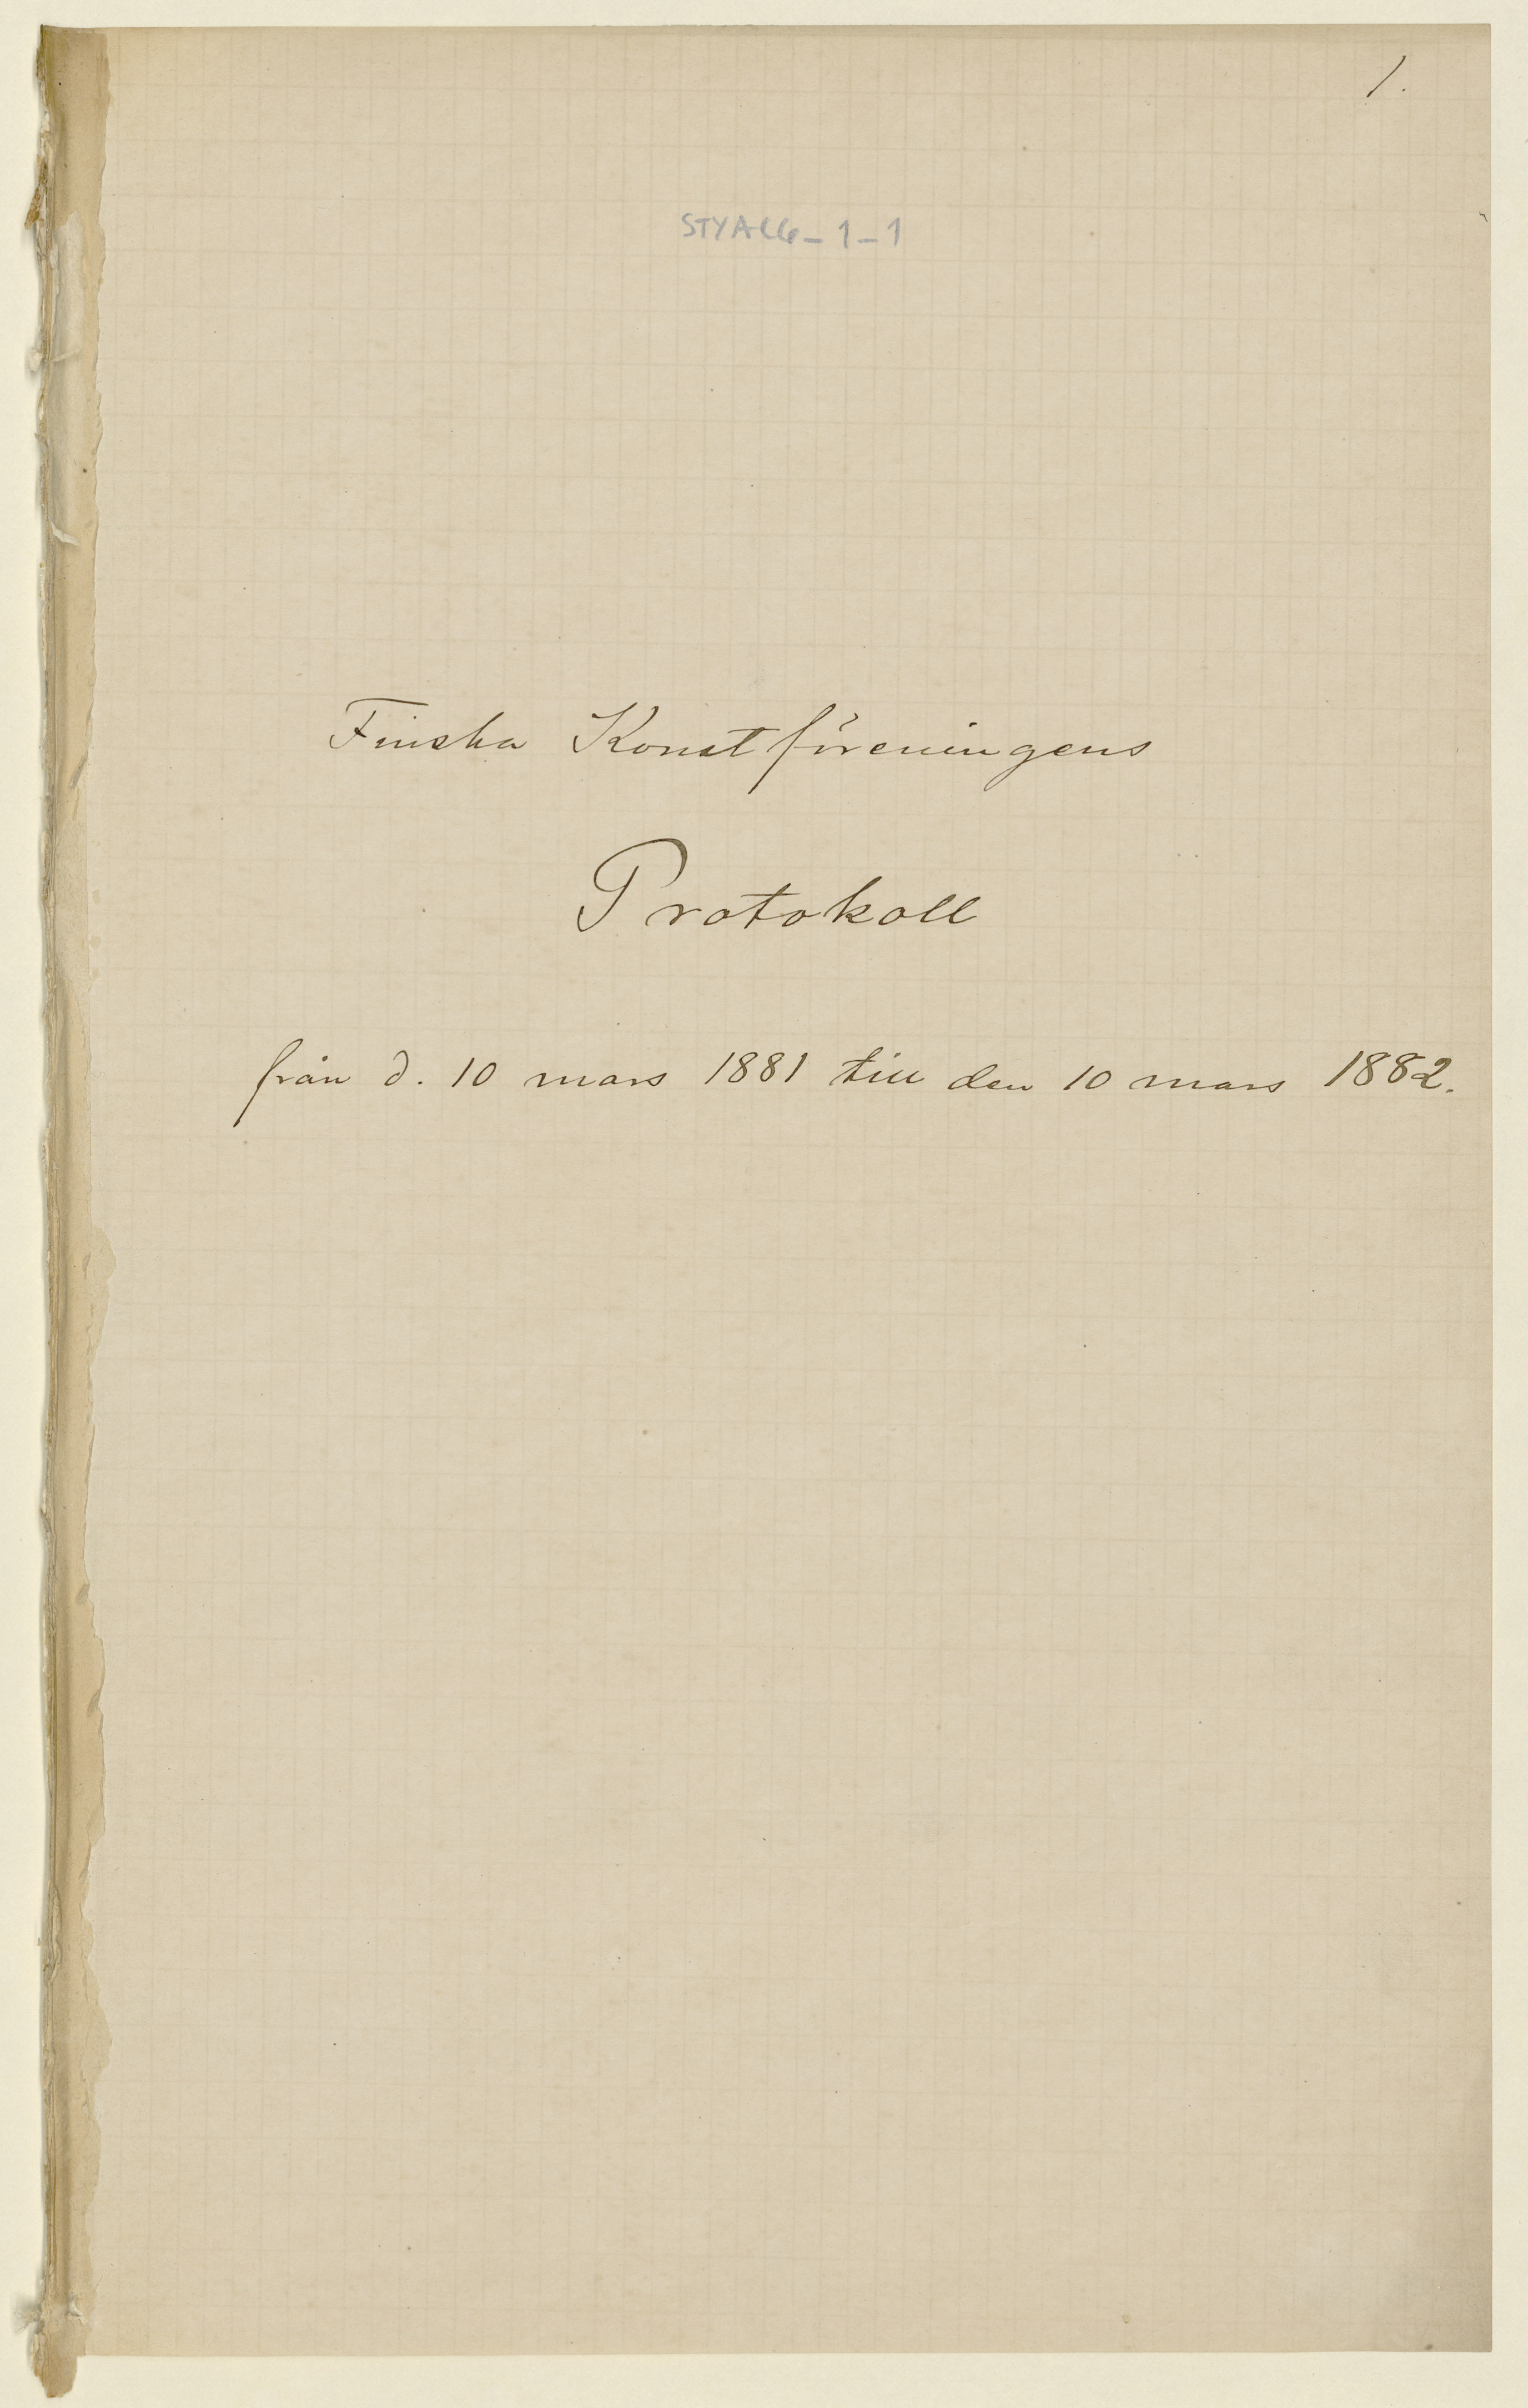 1.
STYAC6-1-1
Finska Konstföreningens
Protokoll
från d. 10 mars 1881 till den 10 mars 1882.